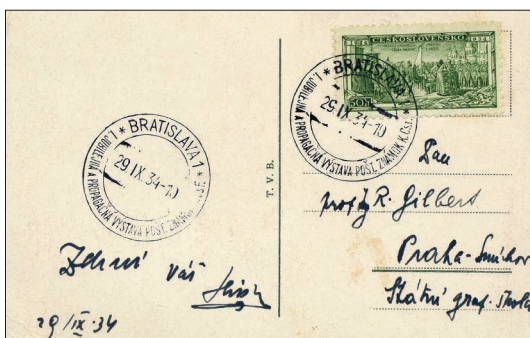 1914 ČESKOSLOVENSKO 1934
50h
* BRATISLAVA 1 *
29.IX.34-10
I. JUBILEJNÁ A PROPAGAČNÁ VÝSTAVA POŠT. ZNÁMOK
* BRATISLAVA
29.IX.34-10
I. JUBILEJNÁ A PROPAGAČNÁ VÝSTAVA POŠT. ZNÁMOK K.ČSF.
T. V. B.
Pan
prof. R. Gilbert
Praha-Smíchov
Státní graf. škola
Zdraví Váš
29/IX.34